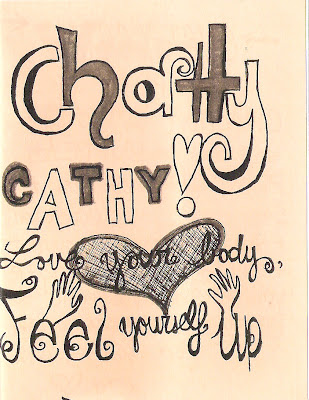 Chatty
CATHY!
Love your body,
Feel yourself Up